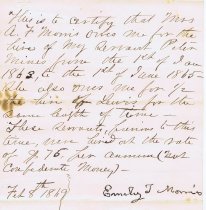 This is to certify that Mrs
A. F. Morris owes me for the
hire of my servant Peter
Mines from the 1st of Jan
1863, to the 1st of June 1865 -
She also owes me for ½
the hire of Lewis for the
same length of time -
These servants, previous to this
time, were hired at the rate
of $75, per annum (not
Confederate Money) -
Feb 8th 1869
Emily T. Morris